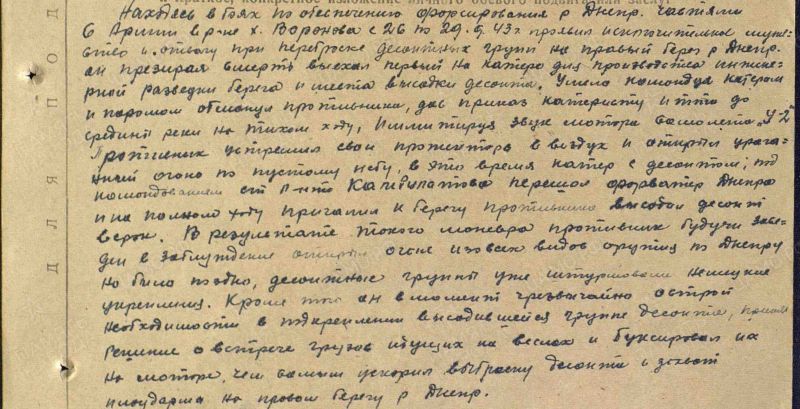 и краткое, конкретное изложение личного боевого подвига или заслуг
Находясь в боях по обеспечению форсирования р Днепр. частями
6 Армии в р-не х. Воронова с 26 по 29.9.43г проявил исключительное муже-
ство и отвагу при переброске десантных групп на правый берег р Днепр.
он презирая смерть выехал первый на катере для производства инжене-
рной разведки берега и места высадки десанта. Умело командуя катером
и паромом обманул противника, дав приказ катеристу итти до
средины реки на тихом ходу, Иммитируя звук мотора самолета „У2"
Противник устремил свои прожектора в воздух и открыл урага-
нный огонь по пустому небу, в это время катер с десантом, под
командованием ст л-нта Кальбулатова перешол форватер Днепра
и на полном ходу причалил к берегу противника высадил десант
В результате такого маневра противник будучи заве-
ден в заблуждение открыл огонь из всех видов оружия по Днепру
но было поздно, десантные группы уже штурмовали немецкие
укрепления. Кроме того он в момент чрезвычайно острой
необходимости в подкреплении высадившейся группе десанта, принял
решение о встрече грузов идущих на веслах и буксировал их
на моторе, чем самым ускорил выброску десанта и захват
плацдарма на правом берегу р Днепр.
Д Л Я П О Д